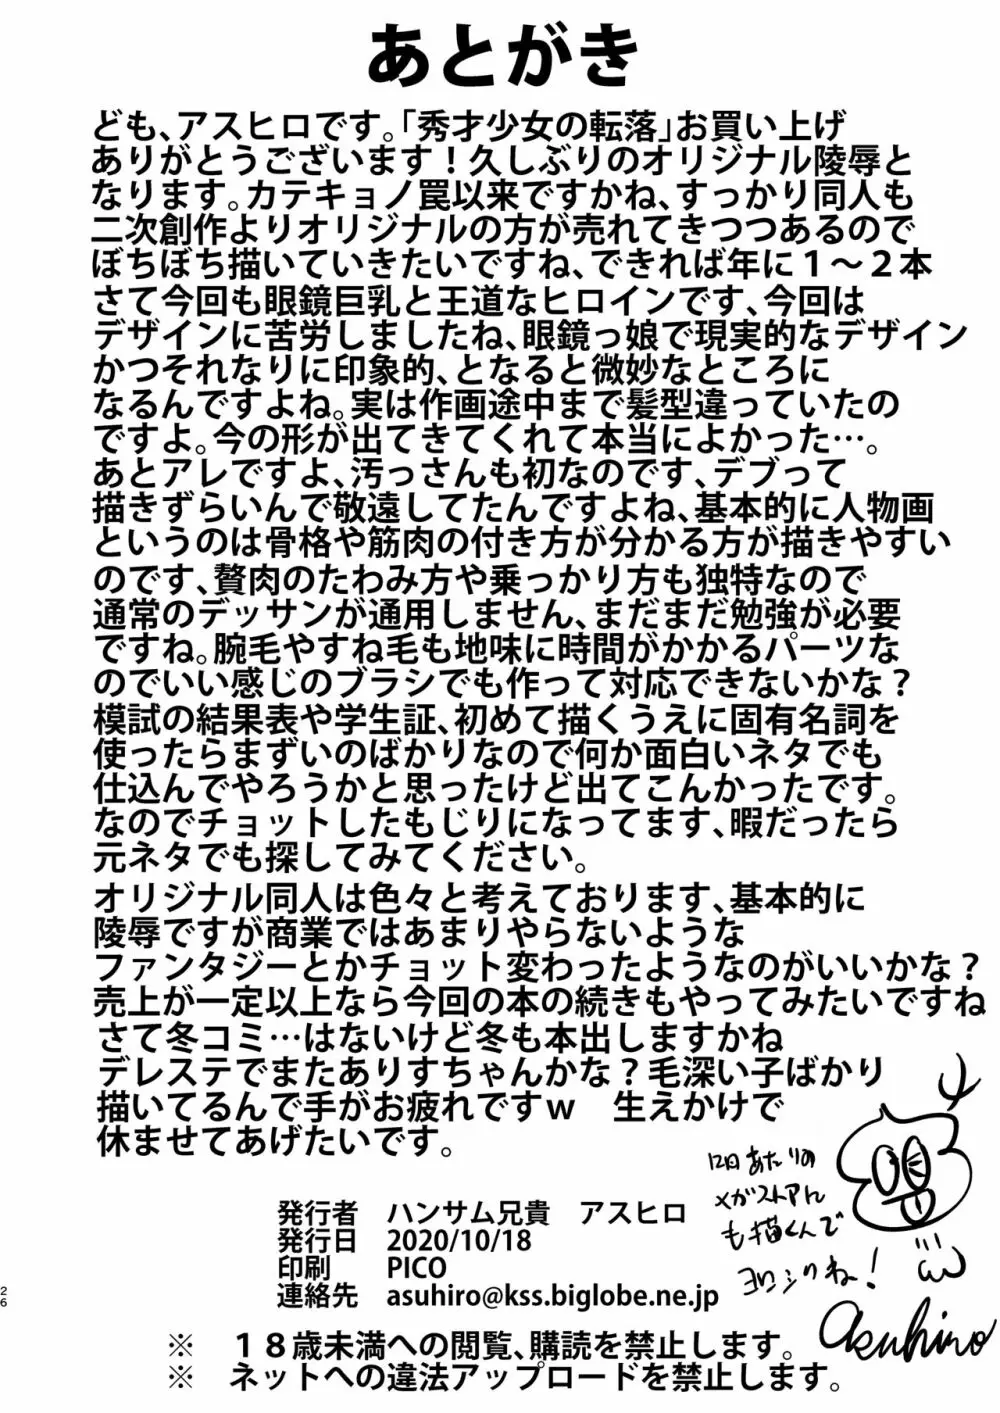 あとがき
ども、アスヒロです。「秀才少女の転落」お買い上げ
ありがとうございます！久しぶりのオリジナル陵辱と
なります。カテキョノ罠以来ですかね、すっかり同人も
二次創作よりオリジナルの方が売れてきつつあるので
ぼちぼち描いていきたいですね、できれば年に１～２本
さて今回も眼鏡巨乳と王道なヒロインです、今回は
デザインに苦労しましたね、眼鏡っ娘で現実的なデザイン
かつそれなりに印象的、となると微妙なところに
なるんですよね。実は作画途中まで髪型違っていたの
ですよ。今の形が出てきてくれて本当によかった…。
あとアレですよ、汚っさんも初なのです、デブって
描きずらいんで敬遠してたんですよね、基本的に人物画
というのは骨格や筋肉の付き方が分かる方が描きやすい
のです、贅肉のたわみ方や乗っかり方も独特なので
通常のデッサンが通用しません、まだまだ勉強が必要
ですね。腕毛やすね毛も地味に時間がかかるパーツな
のでいい感じのブラシでも作って対応できないかな？
模試の結果表や学生証、初めて描くうえに固有名詞を
使ったらまずいのばかりなので何か面白いネタでも
仕込んでやろうかと思ったけど出てこんかったです。
なのでチョットしたもじりになってます、暇だったら
元ネタでも探してみてください。
オリジナル同人は色々と考えております、基本的に
陵辱ですが商業ではあまりやらないような
ファンタジーとかチョット変わったようなのがいいかな？
売上が一定以上なら今回の本の続きもやってみたいですね
さて冬コミ…はないけど冬も本出しますかね
デレステでまたありすちゃんかな？毛深い子ばかり
描いてるんで手がお疲れですｗ　生えかけで
休ませてあげたいです。
12日あたりの
メガストアん
も描くんで
ヨロシクね！
発行者　ハンサム兄貴　アスヒロ
発行日　2020/10/18
印刷　PICO
連絡先　asuhiro@kss.biglobe.ne.jp
Asuhiro
※　１８歳未満への閲覧、購読を禁止します。
※　ネットへの違法アップロードを禁止します。
26